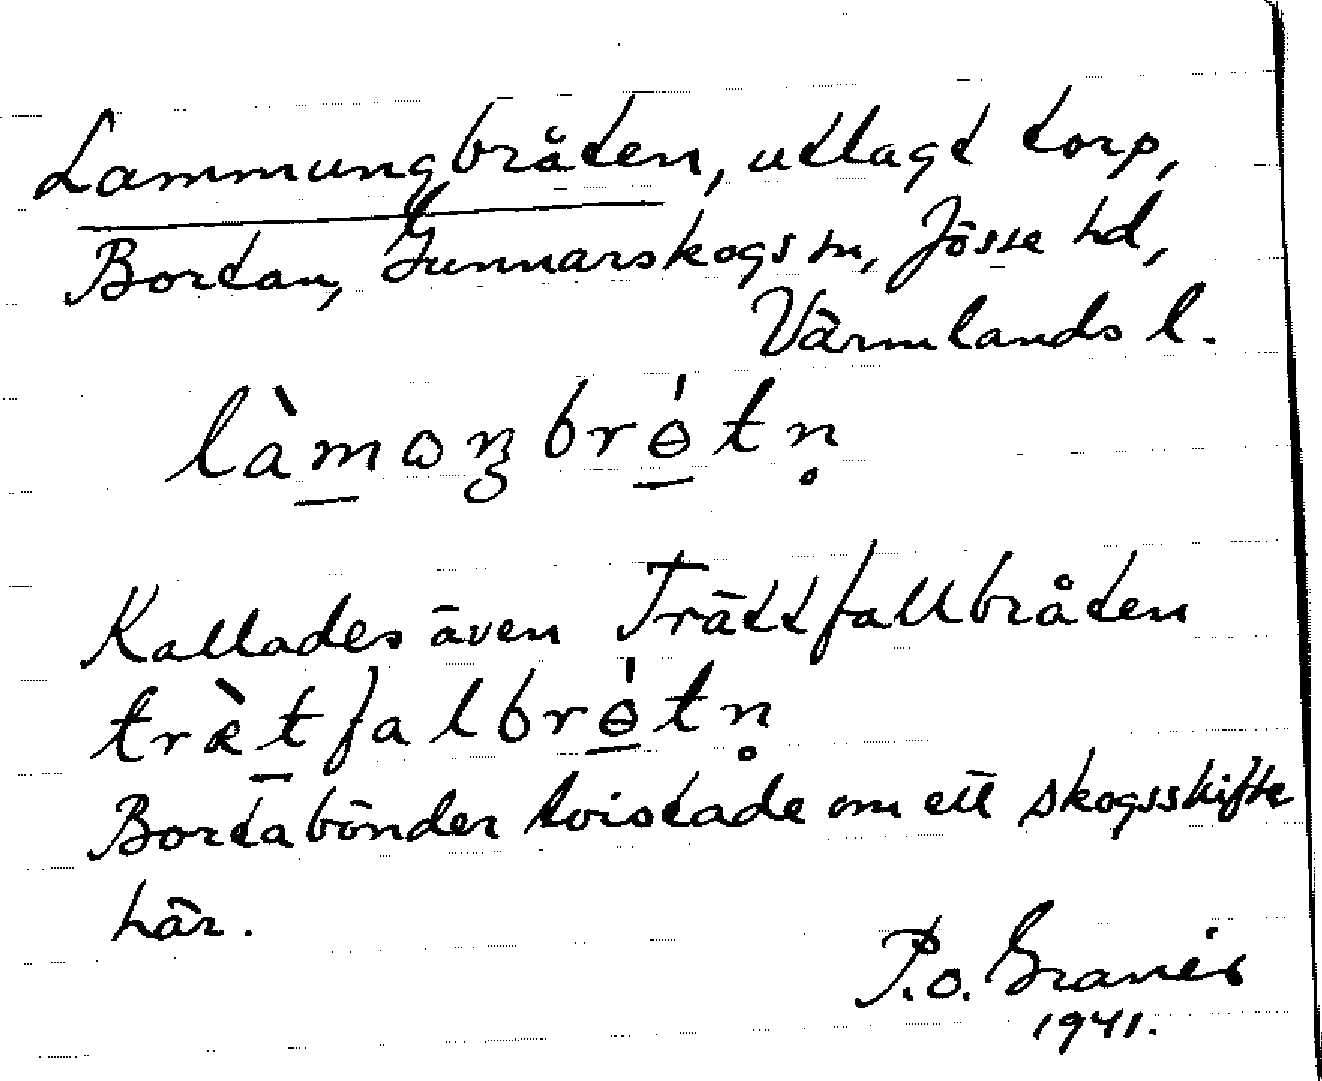 Lammungbråten, utlagt torp,
Bortan, Gunnarskogs sn, Jösse hd,
Värmlands l.
làmoŋbrótn̥
Kallades även Trättfallbråten
trætfalbrótn̥
Bortabönder tvistade om ett skogsskifte
här.
P.o. Granér
1941.